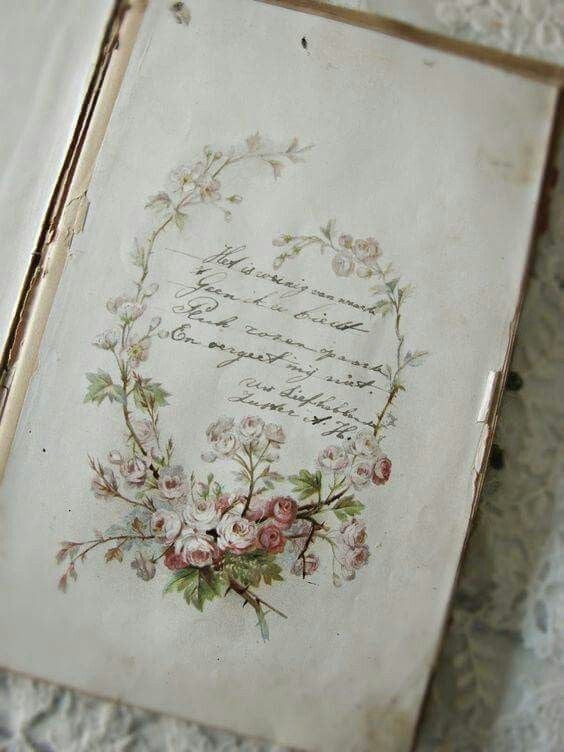 Het is weinig van waarde
Geen ik u biedt
Pluk rozen op aarde
En vergeet mij niet.
Uw Liefhebbende
Zuster A. H.